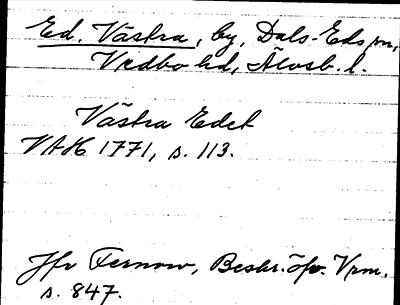 Ed, Västra, by, Dals-Eds sn,
Vedbo hd, Älvsb. l.
Västra Edet
VAH 1771, s. 113.
Jfr Fernow, Beskr. öfv. Vrm.
s. 847.